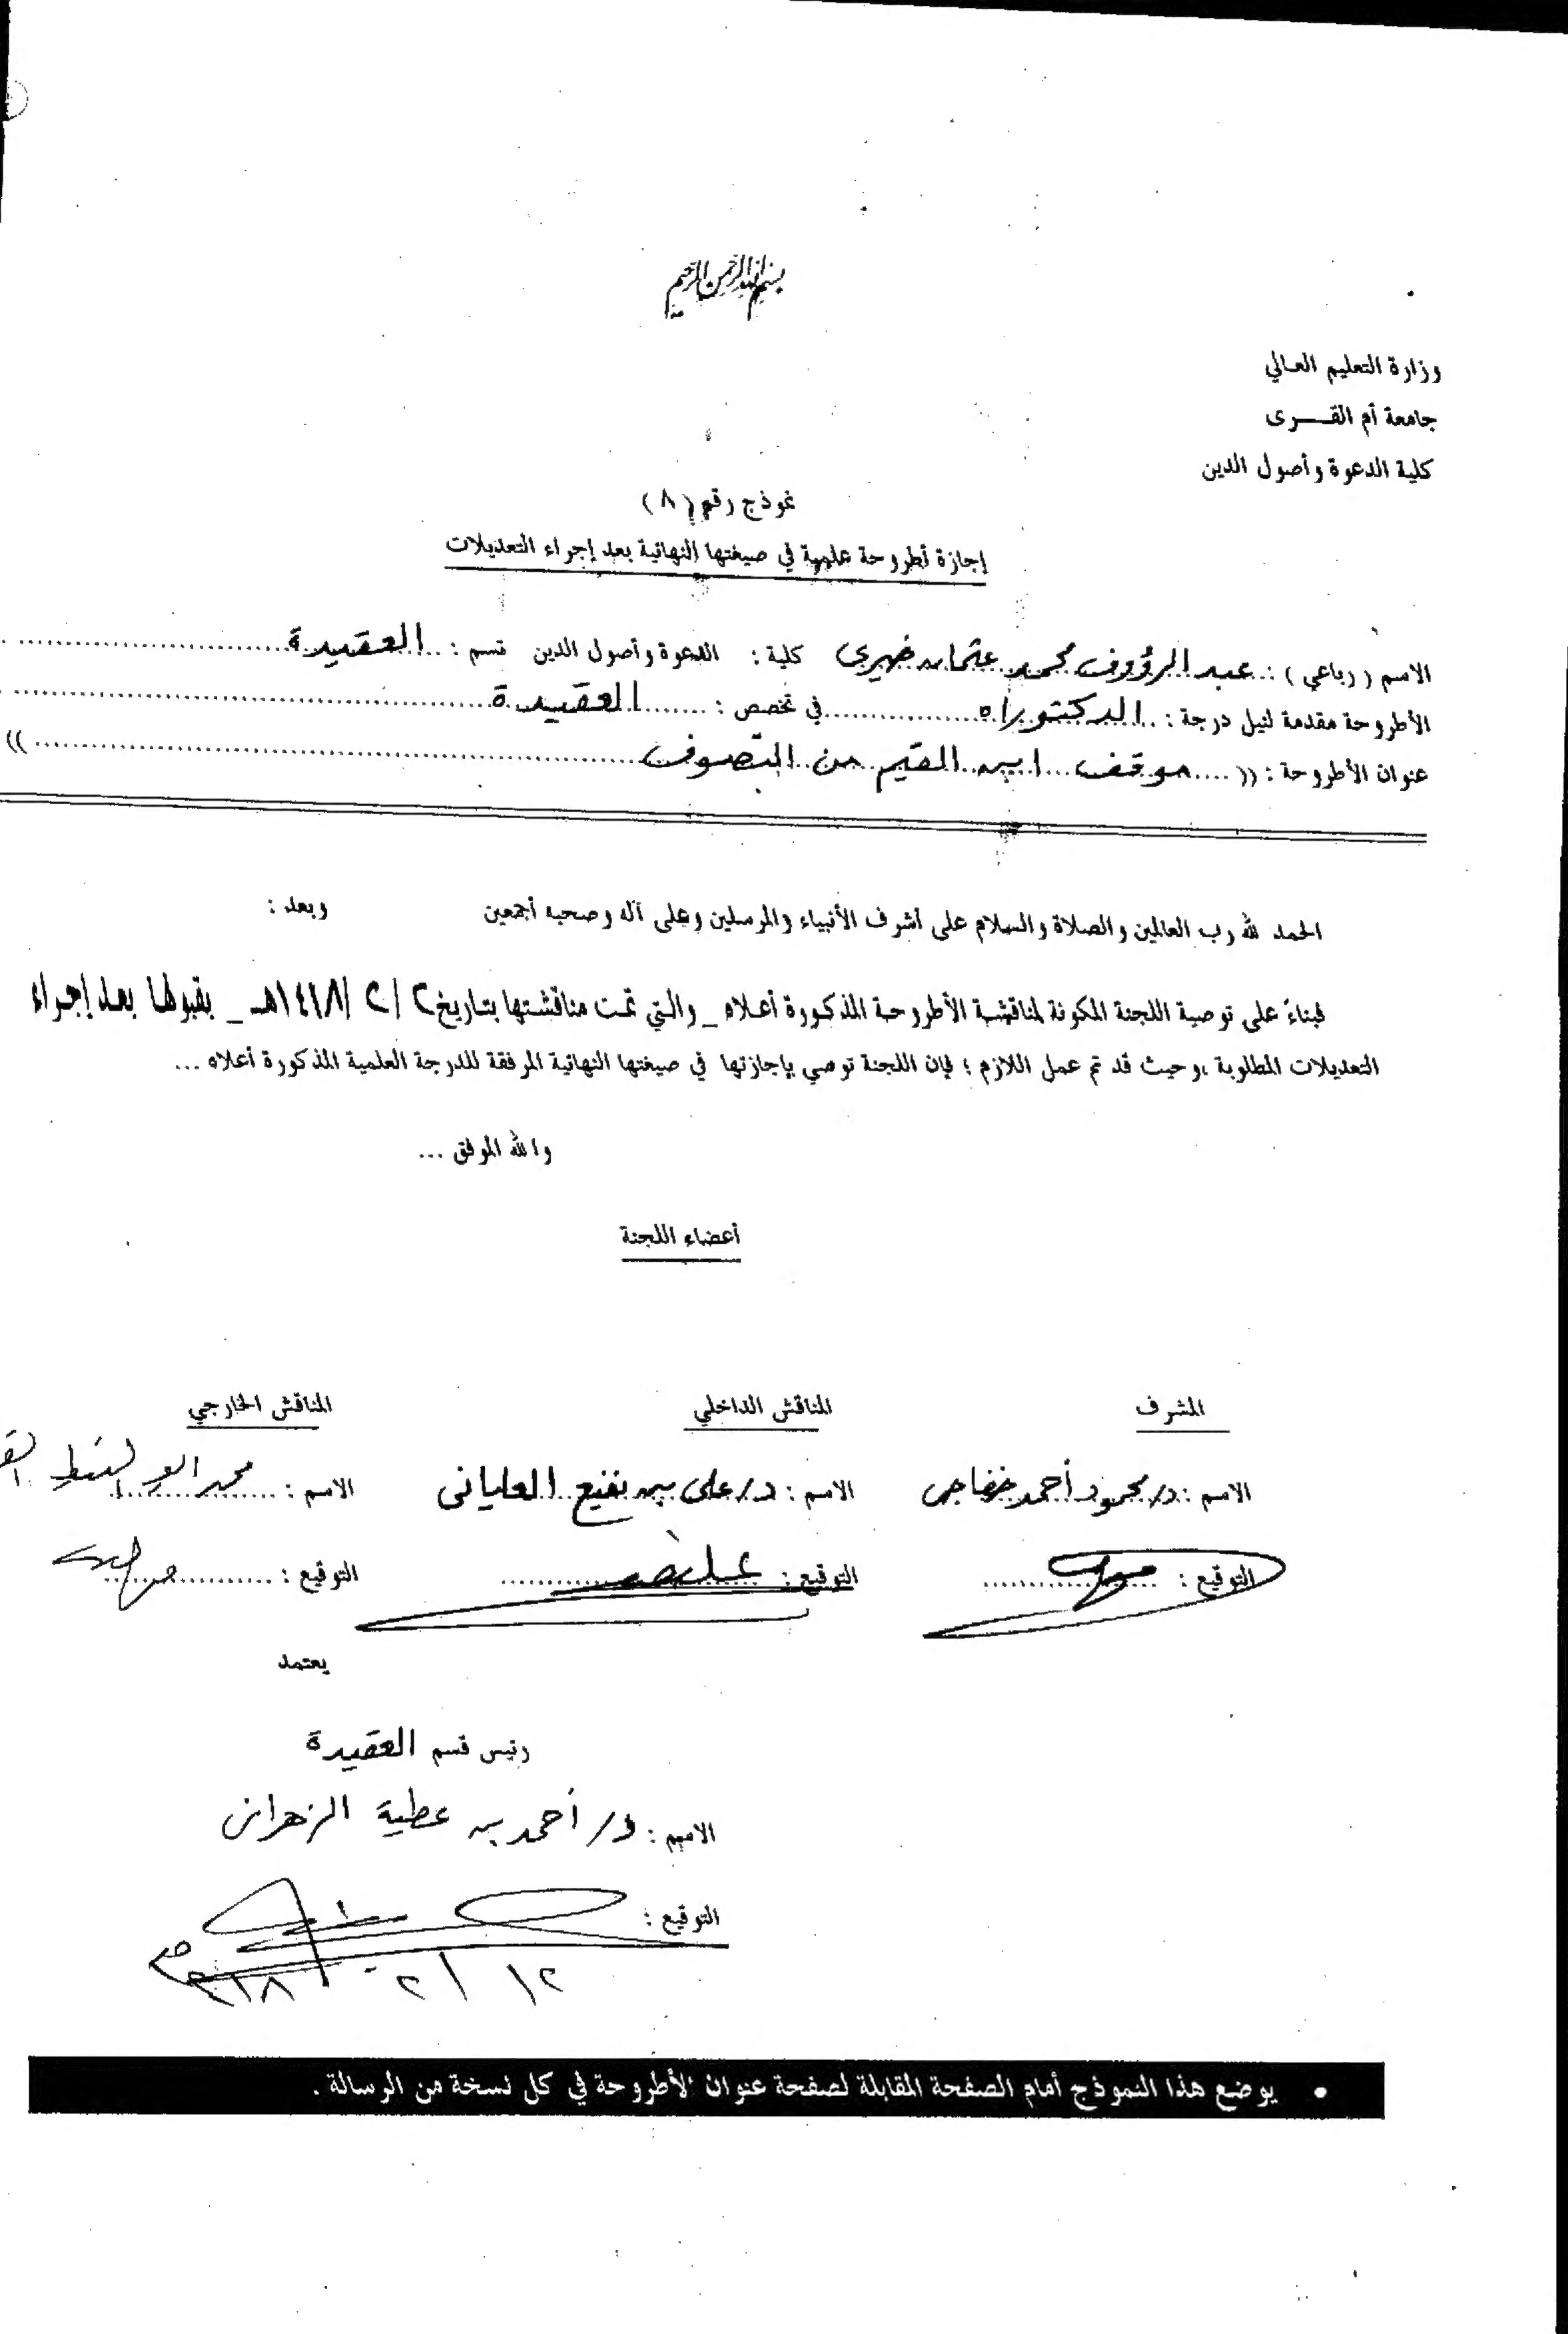 بسم الله الرحمن الرحيم
وزارة التعليم العالي
جامعة أم القــــرى
كلية الدعوة وأصول الدين
نموذج رقم (٨)
إجازة أطروحة علمية في صيغتها النهائية بعد إجراء التعديلات
الاسم ( رباعي ) : عبد الرؤوف محمد عثمان خيري كلية : الدعوة وأصول الدين قسم : العقيدة
الأطروحة مقدمة لنيل درجة : الدكتوراه في تخصص : العقيدة
عنوان الأطروحة : (( موقف ابن القيم من التصوف ))
الحمد لله رب العالمين والصلاة والسلام على أشرف الأنبياء والمرسلين وعلى آله وصحبه أجمعين وبعد :
فبناءً على توصية اللجنة المكونة لمناقشة الأطروحة المذكورة أعلاه _ والتي تمت مناقشتها بتاريخ ٢ / ٢ /١٤١٨هـ _ بقبولها بعد إجراء
التعديلات المطلوبة ،وحيث قد تم عمل اللازم ؛ فإن اللجنة توصي بإجازتها في صيغتها النهائية المرفقة للدرجة العلمية المذكورة أعلاه ...
والله الموفق ...
أعضاء اللجنة
المشرف المناقش الداخلي المناقش الخارجي
الاسم : د/ محمود أحمد خفاجى الاسم : د/ على بن نفيع العليانى الاسم : محمد
التوقيع : التوقيع : التوقيع :
يعتمد
رئيس قسم العقيدة
الاسم : د/ أحمد بن عطية الزهرانى
التوقيع :
١٢ / ٢
• يوضع هذا النموذج أمام الصفحة المقابلة لصفحة عنوان الأطروحة في كل نسخة من الرسالة .